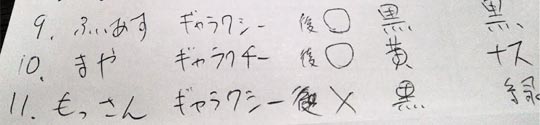 9. ふぃあす ギャラクシー 後○ 黒 黒
10. まや ギャラクチー 後○ 黄 ナス
11. もっさん ギャラクシー 後× 黒 緑